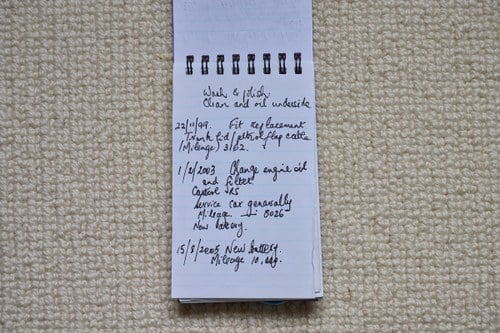 Wash & polish.
Clean and oil underside
22/11/99. Fit replacement
Trunk lid/petrol flap cable
(Mileage) 3162.
1/2/2003 Change engine oil
and filter
Castrol RS
Service car generally
Mileage — 8026
New battery.
15/8/2005 New battery.
Mileage 10,